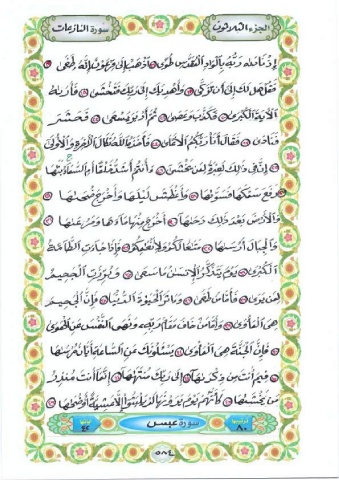 سورة النازعات الجزء الثلاثون
إذ ناداه ربه بالواد المقدس طوى اذهب إلى فرعون إنه طغى
فقل هل لك إلى أن تزكى وأهديك إلى ربك فتخشى فأراه
الآية الكبرى فكذب وعصى ثم أدبر يسعى فحشر
فنادى فقال أنا ربكم الأعلى فأخذه الله نكال الآخرة والأولى
إن في ذلك لعبرة لمن يخشى ءأنتم أشد خلقا أم السماء بناها
رفع سمكها فسواها وأغطش ليلها وأخرج ضحاها
والأرض بعد ذلك دحاها أخرج منها ماءها ومرعاها
والجبال أرساها متاعا لكم ولأنعامكم فإذا جاءت الطامة
الكبرى يوم يتذكر الإنسان ما سعى وبرزت الجحيم
لمن يرى فأما من طغى وءاثر الحيوة الدنيا فإن الجحيم
هي المأوى وأما من خاف مقام ربه ونهى النفس عن الهوى
فإن الجنة هي المأوى يسئلونك عن الساعة أيان مرساها
فيم أنت من ذكراها إلى ربك منتهاها إنما أنت منذر
من يخشاها كأنهم يوم يرونها لم يلبثوا إلا عشية أو ضحاها
ترتيبها ٨٠ سورة عبس آياتها ٤٢
٥٨٤